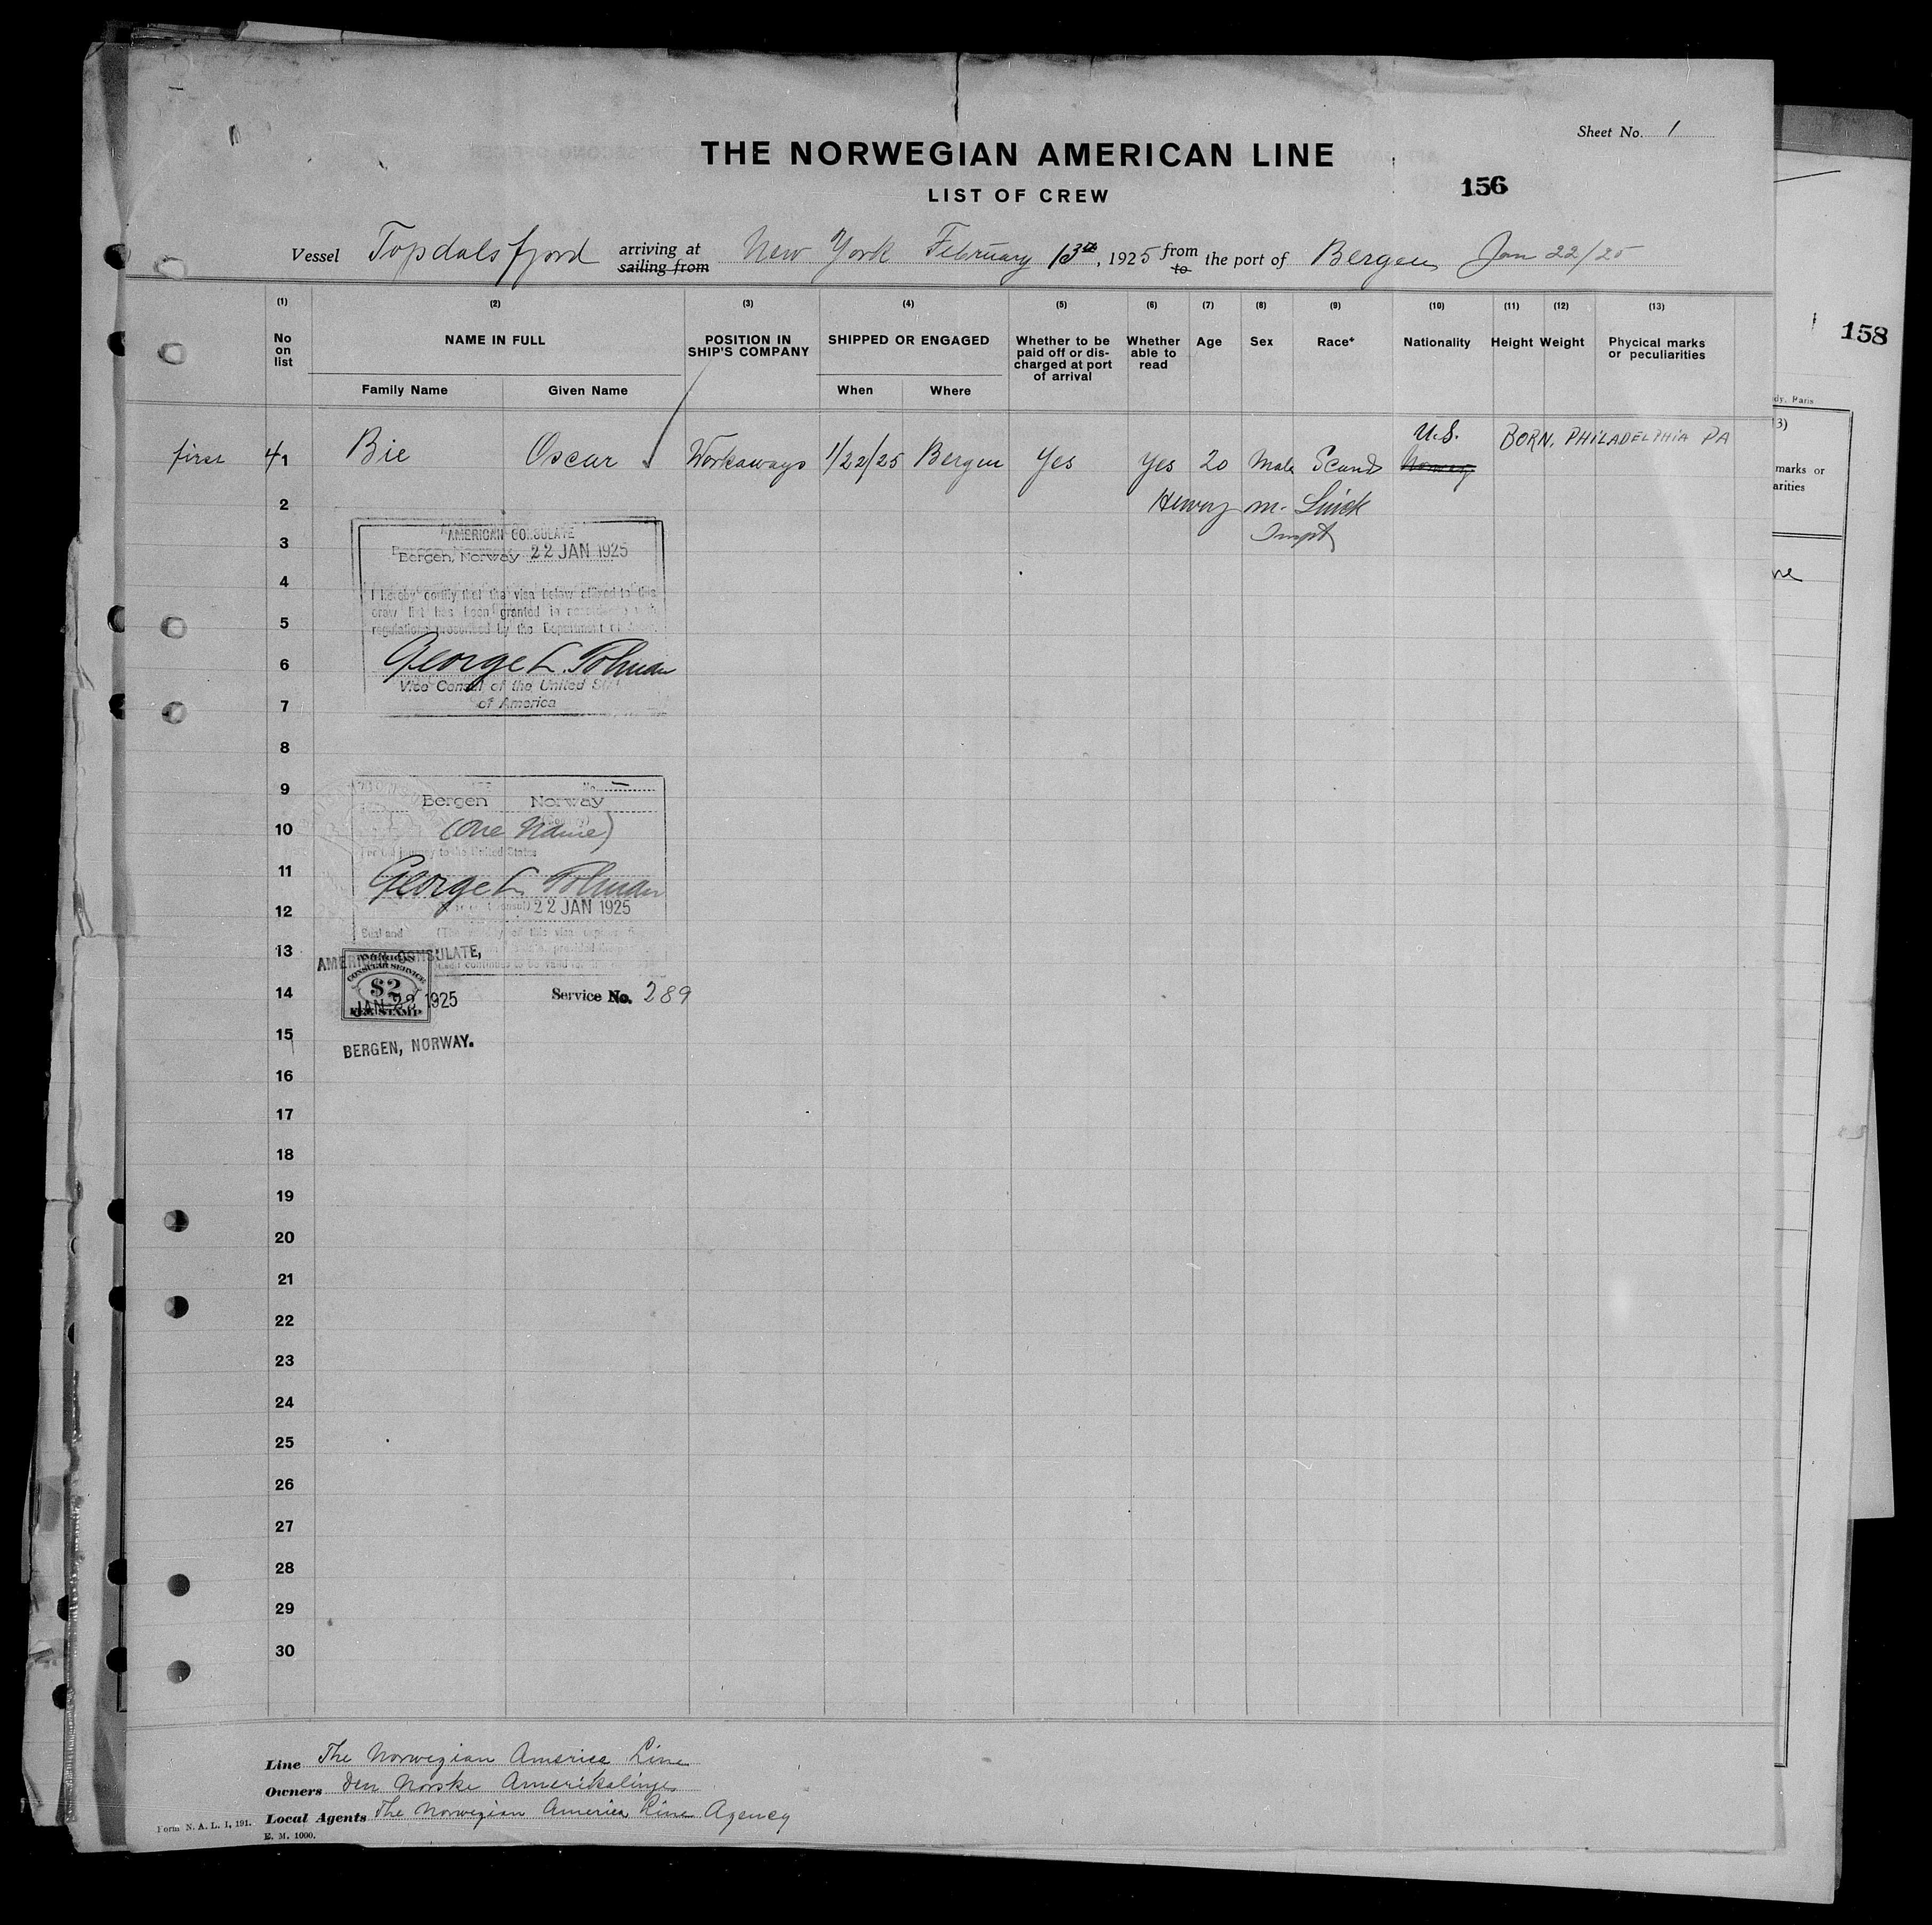 Sheet No. 1
THE NORWEGIAN AMERICAN LINE
156
LIST OF CREW
Vessel Topdalsfjord arriving at New York February 13th, 1925 from the port of Bergen Jan 22/25
sailing from to
158
(1) (2) (3) (4) (5) (6) (7) (8) (9) (10) (11) (12) (13)
No on list
NAME IN FULL
POSITION IN SHIP'S COMPANY
SHIPPED OR ENGAGED
Whether to be paid off or dis-charged at port of arrival
Whether able to read
Age
Sex
Race*
Nationality
Height
Weight
Phycical marks or peculiarities
Family Name
Given Name
When
Where
dy, Paris
3)
marks or
arities
U.S. BORN. PHILADELPHIA PA
first 1 Bie Oscar Workaways 1/22/25 Bergen Yes Yes 20 Male Scand Norway
2 Henry M.
3
AMERICAN CONSULATE
Bergen, Norway 22 JAN 1925
4
I hereby certify that the visa below affixed to this
crew list has been granted in accordance with
5
regulations prescribed by the Department of State.
6
George L. Tolman
Vice Consul of the United States
of America
7
8
9
No.
Bergen Norway
10
(One Name)
For the journey to the United States
11
George L. Tolman
12
22 JAN 1925
Seal and
13
AMERICAN CONSULATE,
AMERICAN
CONSULAR SERVICE
$2
14
JAN 22 1925
FEE STAMP
Service No. 289
15
BERGEN, NORWAY.
16
17
18
19
20
21
22
23
24
25
26
27
28
29
30
Line The Norwegian America Line
Owners Den Norske Amerikalinje
Local Agents The Norwegian America Line Agency
Form N. A. L. I, 191.
E. M. 1000.